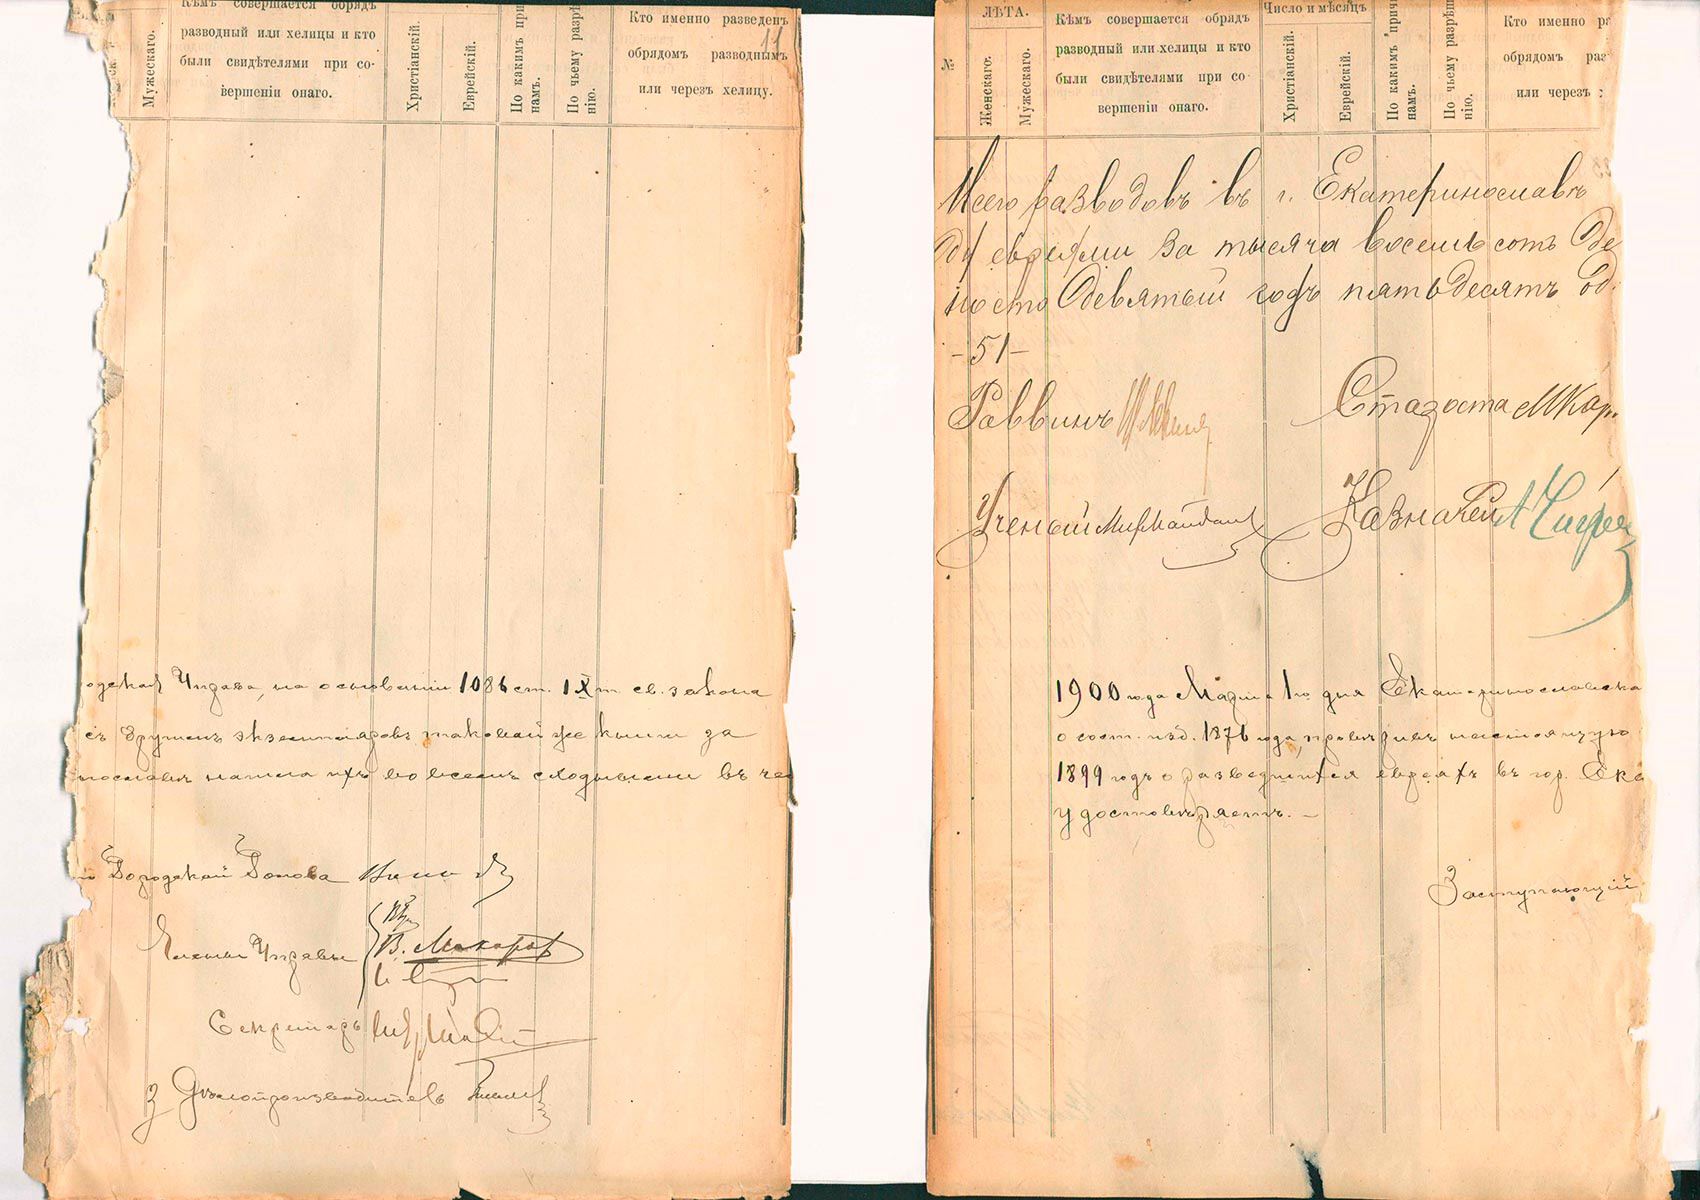 Мужескаго.
Кѣмъ совершается обрядъ
разводный или хелицы и кто
были свидѣтелями при со-
вершеніи онаго.
Христіанскій.
Еврейскій.
По какимъ при
намъ.
По чьему разрѣ
нію.
Кто именно разведенъ
обрядомъ разводнымъ
или черезъ хелицу.
11
одская Управа, на основаніи 1086 ст. IX т. св. закона
съ другимъ экземпляромъ таковой же книги за
нославѣ нашла ихъ во всемъ сходными въ че
Городской Головы
Члены Управы
В. Макаров
Секретарь
Дѣлопроизводитель
№
ЛѢТА.
Женскаго.
Мужескаго.
Кѣмъ совершается обрядъ
разводный или хелицы и кто
были свидѣтелями при со-
вершеніи онаго.
Число и мѣсяцъ
Христіанскій.
Еврейскій.
По какимъ прич
намъ.
По чьему разрѣш
нію.
Кто именно ра
обрядомъ раз
или черезъ
Всего разводовъ въ г. Екатеринославѣ
евреями за тысяча восемьсотъ де
носто девятый годъ пятьдесятъ од.
-51-
Раввинъ
Староста М Кар
Ученый
Казначей
1900 года Марта 1го дня Екатеринославска
о сост. изд. 1876 года провѣривъ настоящую
1899 годъ о разведшихся евреяхъ въ гор. Ека
удостовѣряетъ. —
Заступающій